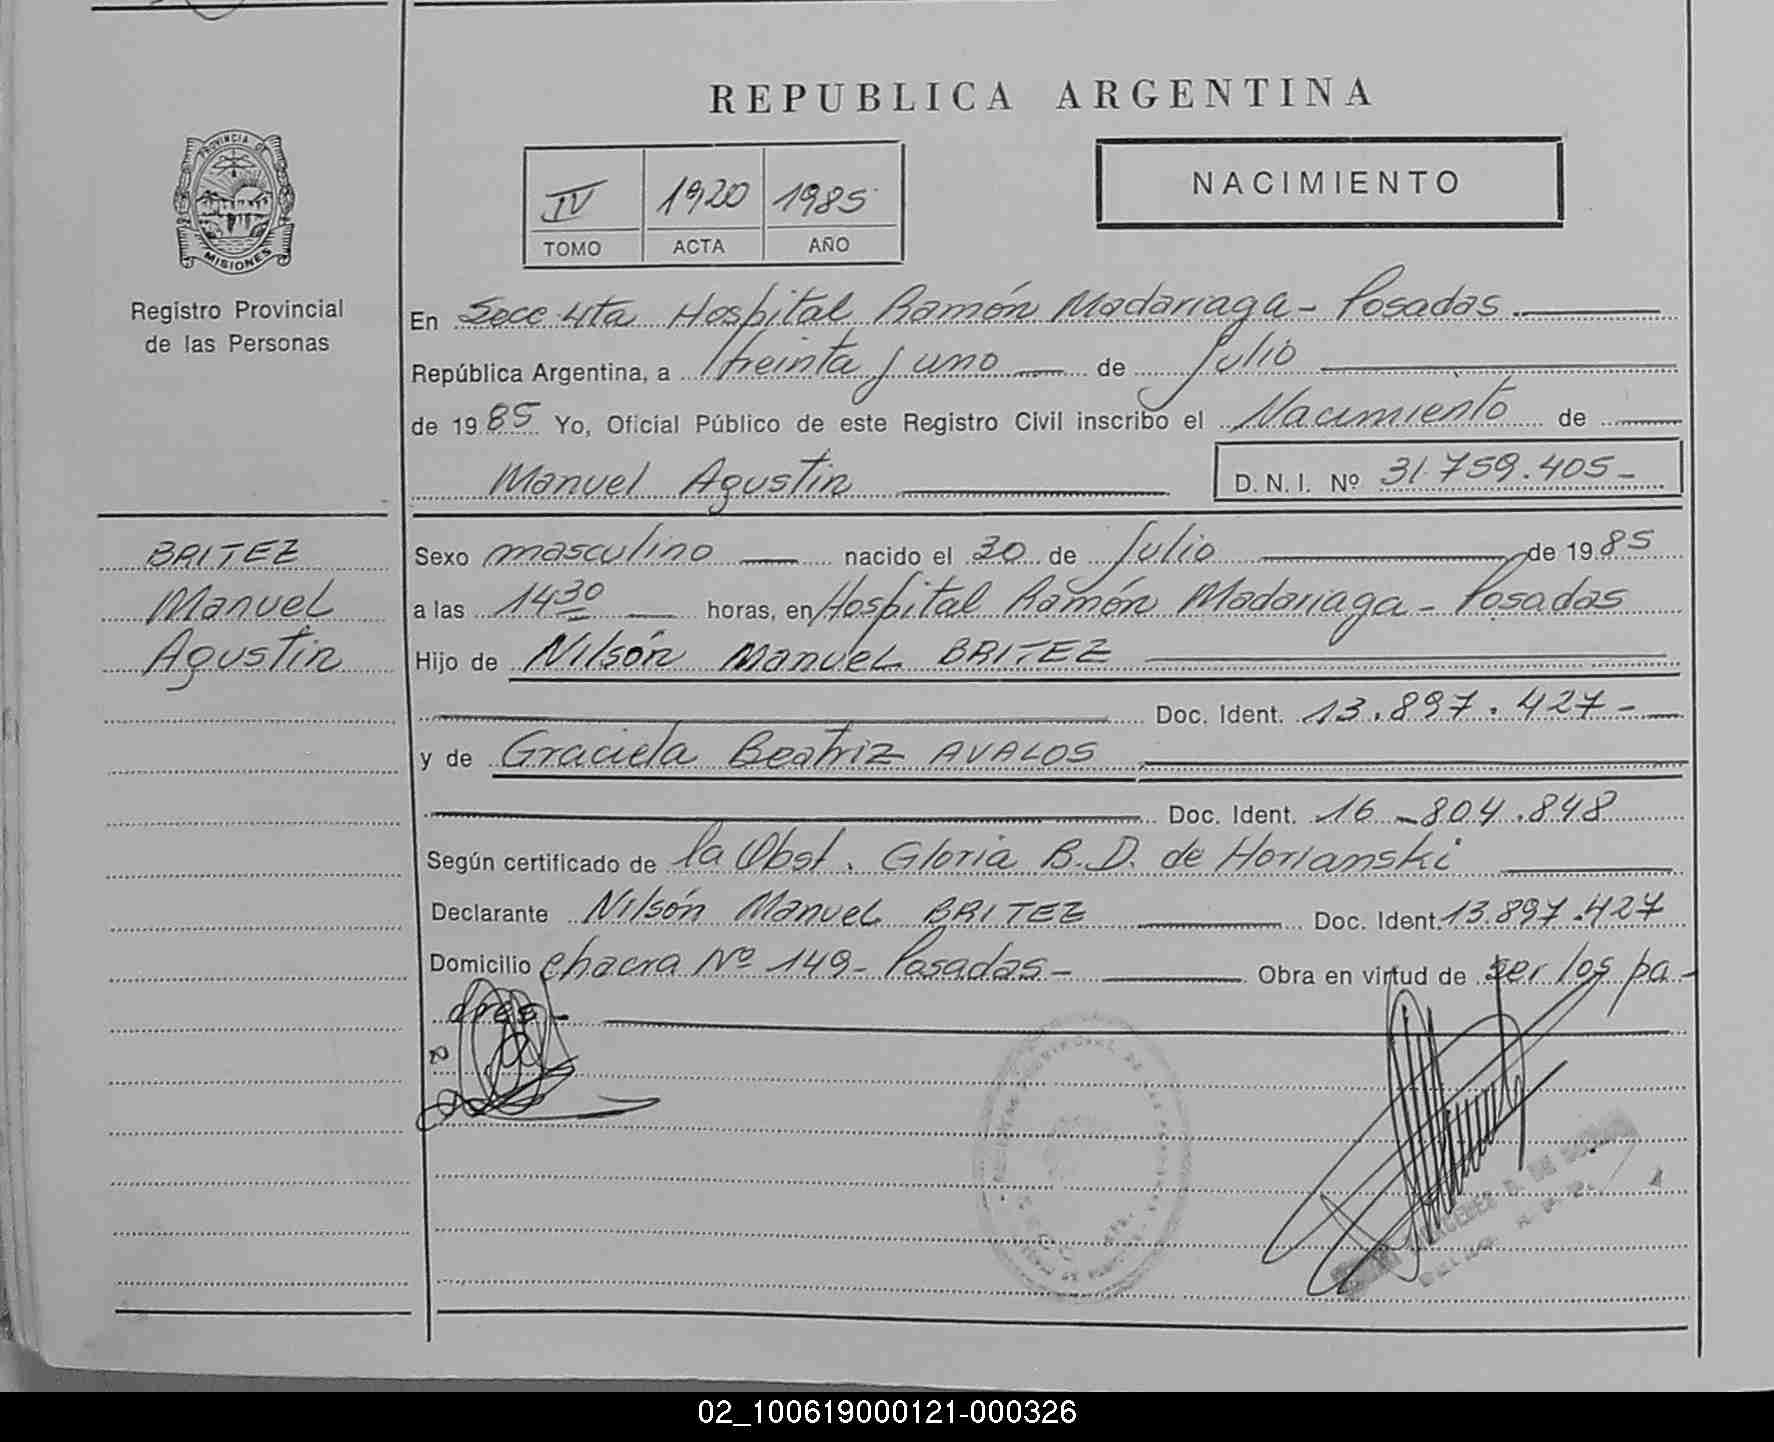 REPUBLICA ARGENTINA
PROVINCIA DE
MISIONES
Registro Provincial
de las Personas
IV 1920 1985
TOMO ACTA AÑO
NACIMIENTO
En Secc 4ta Hospital Ramón Madariaga - Posadas.
República Argentina, a treinta y uno de Julio
de 1985 Yo, Oficial Público de este Registro Civil inscribo el Nacimiento de
Manuel Agustin D.N.I. Nº 31.759.405-
BRITEZ
Manuel
Agustin
Sexo masculino nacido el 20 de Julio de 1985
a las 14 30 horas, en Hospital Ramón Madariaga - Posadas
Hijo de Nilsón Manuel BRITEZ
Doc. Ident. 13.897.427-
y de Graciela Beatriz AVALOS
Doc. Ident. 16-804.848
Según certificado de la Obst. Gloria B.D. de Horianski
Declarante Nilsón Manuel BRITEZ Doc. Ident. 13.897.427
Domicilio Chacra Nº 149- Posadas- Obra en virtud de ser los pa-
dres-
02_100619000121-000326